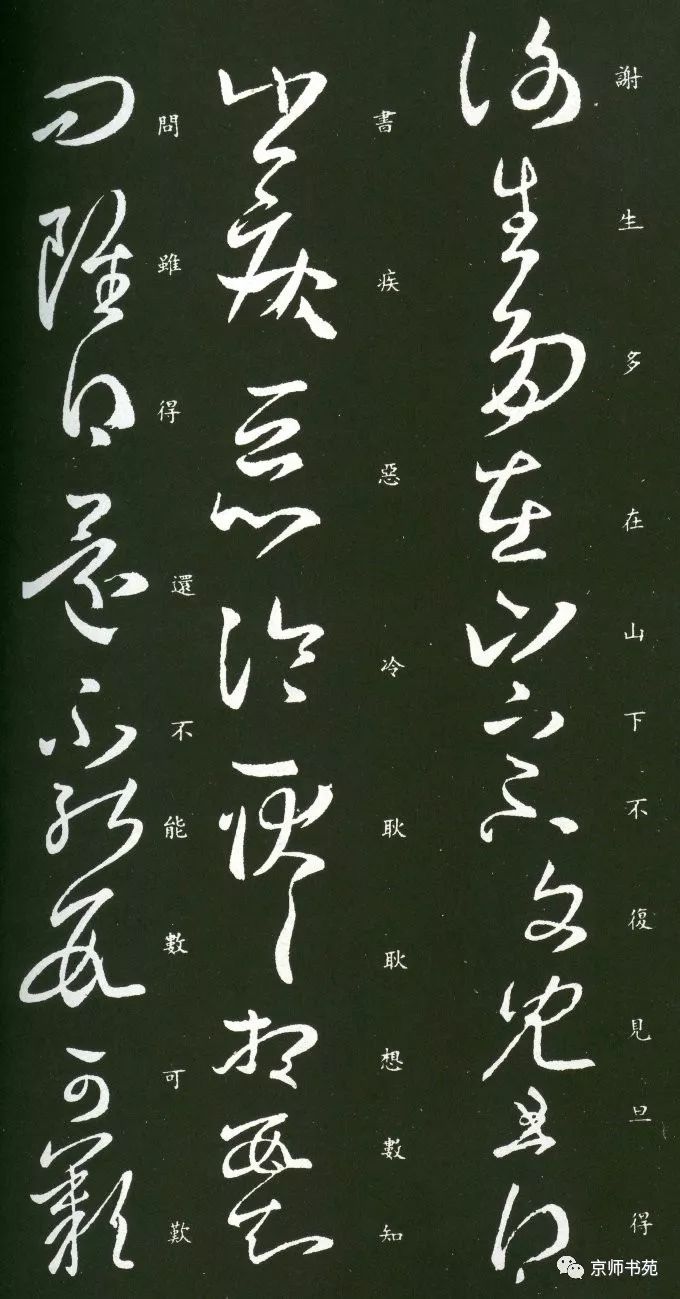 謝生多在山下不復見旦得
書疾惡冷耿耿想數知
問雖得還不能數可歎
京师书苑